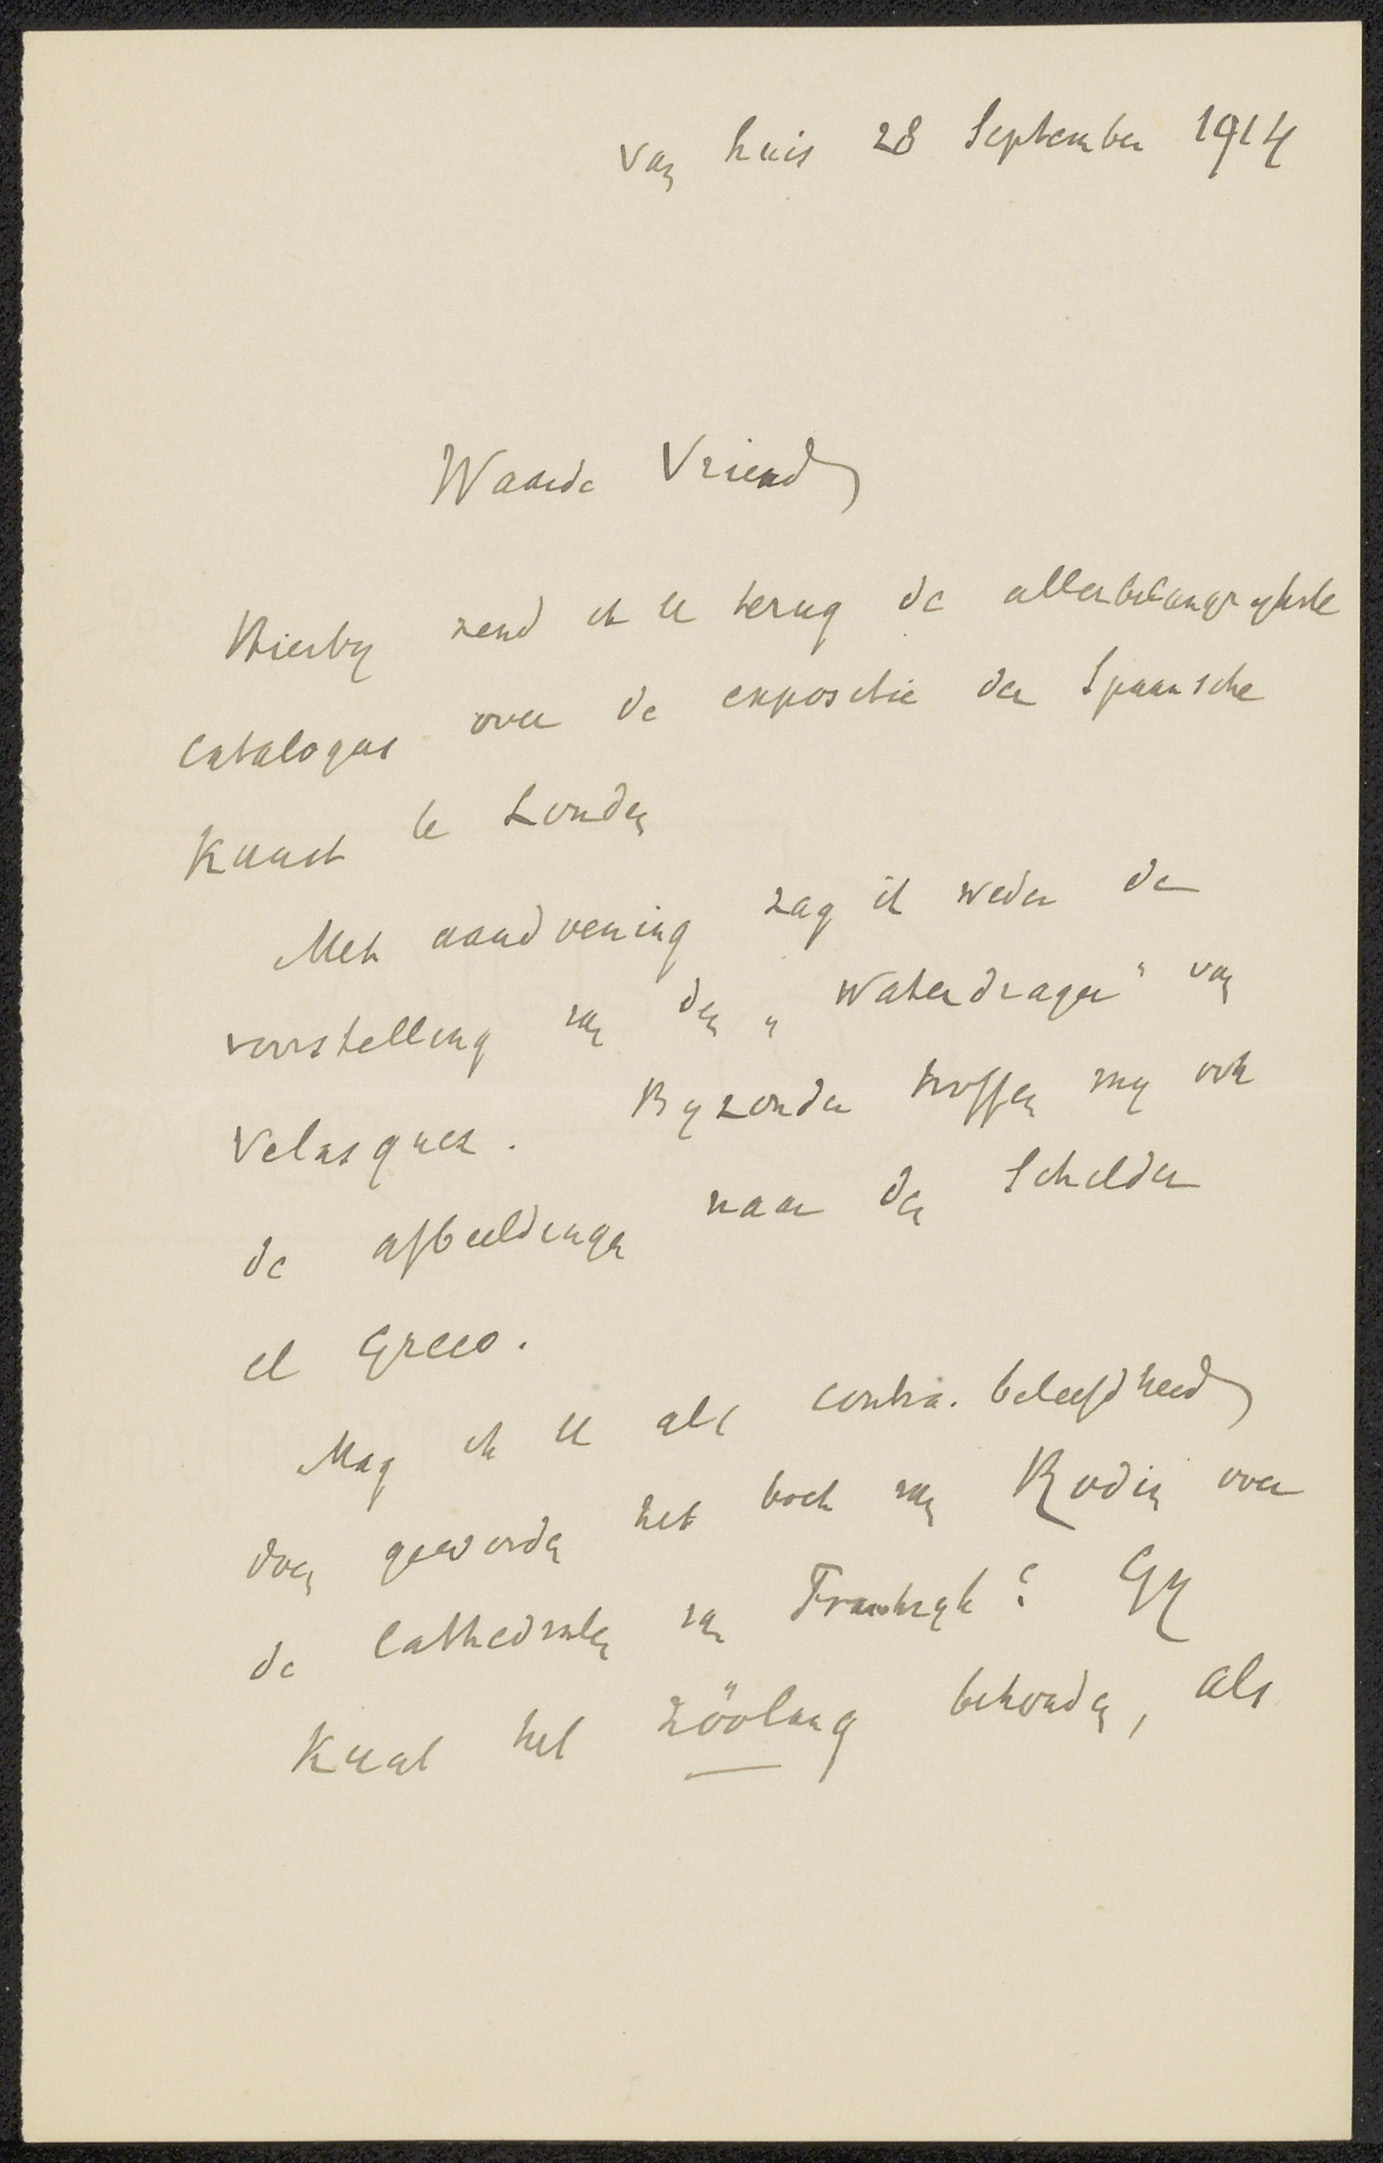 van huis 28 September 1914
Waarde Vriend
Hierby zend ik U terug de allerbelangrykste
catalogus over de expositie der Spaansche
Kunst te Londen
Met aandoening zag ik weder de
voorstelling van den „Waterdrager" van
Velasquez. Byzonder troffen my ook
de afbeeldingen naar den Schilder
el Greco.
Mag ik U als contra-beleefdheid
doen geworden het boek van Rodin over
de Cathedralen van Frankryk? Gy
Kunt het zöölang behouden, als